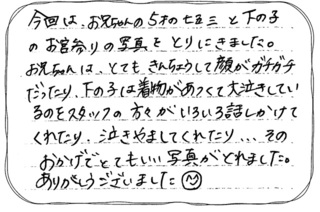 今回は、お兄ちゃんの5才の七五三と下の子
のお宮参りの写真をとりにきました。
お兄ちゃんは、とてもきんちょうして顔がガチガチ
だったり、下の子は着物があつくて大泣きしてい
るのをスタッフの方々がいろいろ話しかけて
くれたり、泣きやましてくれたり...その
おかげでとてもいい写真がとれました。
ありがとうございました